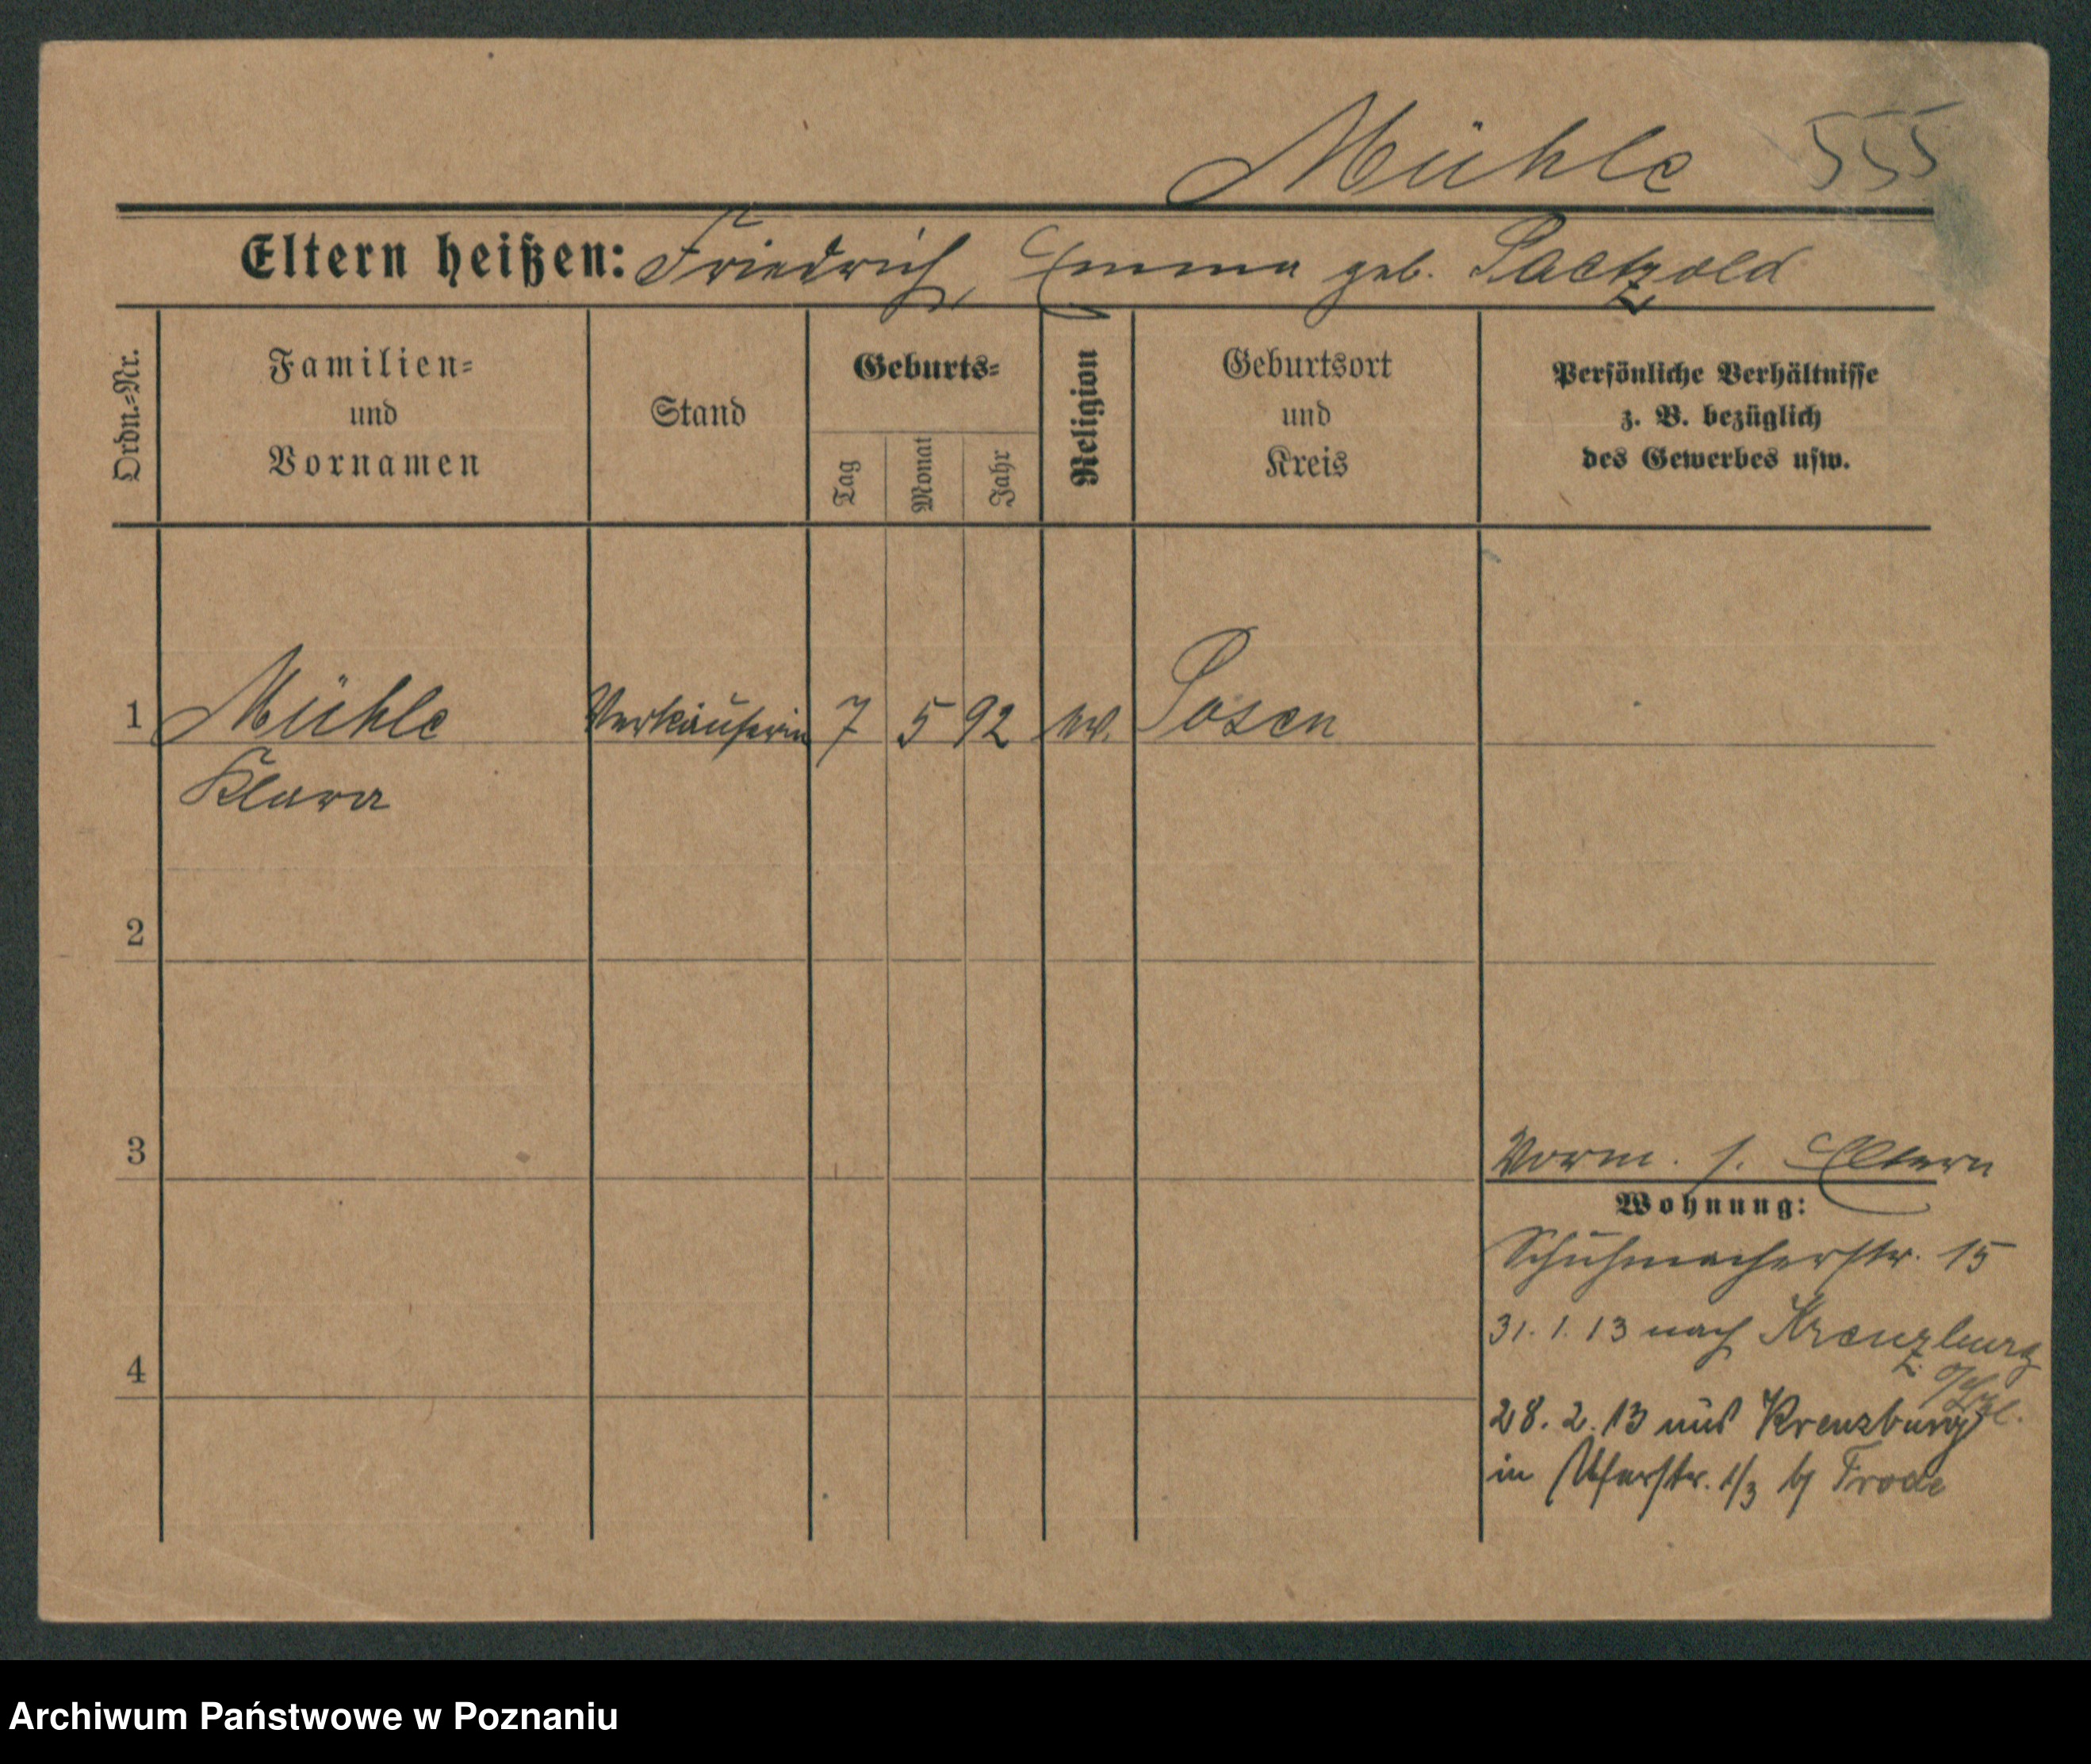 Mühle 555
Eltern heißen: Friedrich, Emma geb. Paetzold
Ordn.-Nr.
Familien-
und
Vornamen
Stand
Geburts-
Tag
Monat
Jahr
Religion
Geburtsort
und
Kreis
Persönliche Verhältnisse
z. B. bezüglich
des Gewerbes usw.
1 Mühle Verkäuferin 7 5 92 ev. Posen
Klara
2
3
Vorm. s. Eltern
Wohnung:
Schuhmacherstr. 15
31. 1. 13 nach Kreuzburg
4
28. 2. 13 aus Kreuzburg
in Uferstr. 1/3 b/
Archiwum Państwowe w Poznaniu